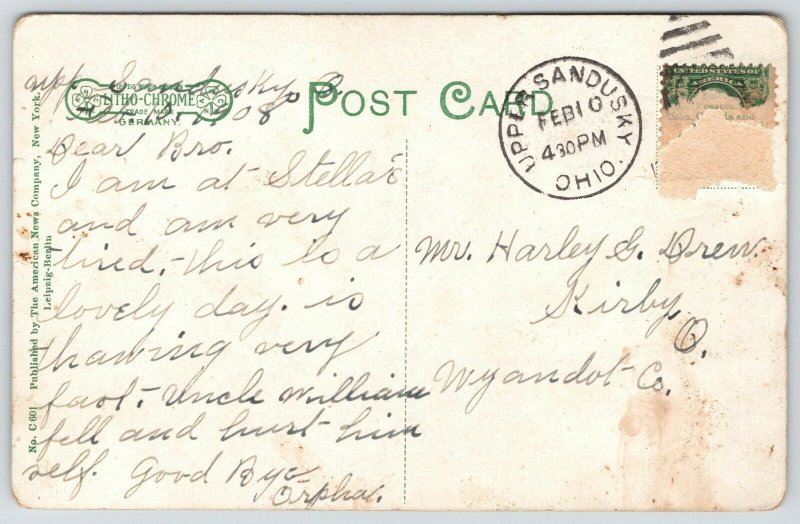 Upp. Sandusky, O.
1908
LITHO-CHROME
TRADE MARK
GERMANY.
POST CARD
UPPER SANDUSKY OHIO.
FEB 10
430 PM
UNITED STATES OF
AMERICA
Dear Bro.
I am at Stella's
and am very
tired,- this is a
lovely day. is
thawing very
fast,- Uncle William
fell and hurt him
self. Good Bye
Orpha.
Mr. Harley G. Drew.
Kirby,
O.
Wyandot Co.
No. C 601 Published by The American News Company, New York.
Leipzig-Berlin